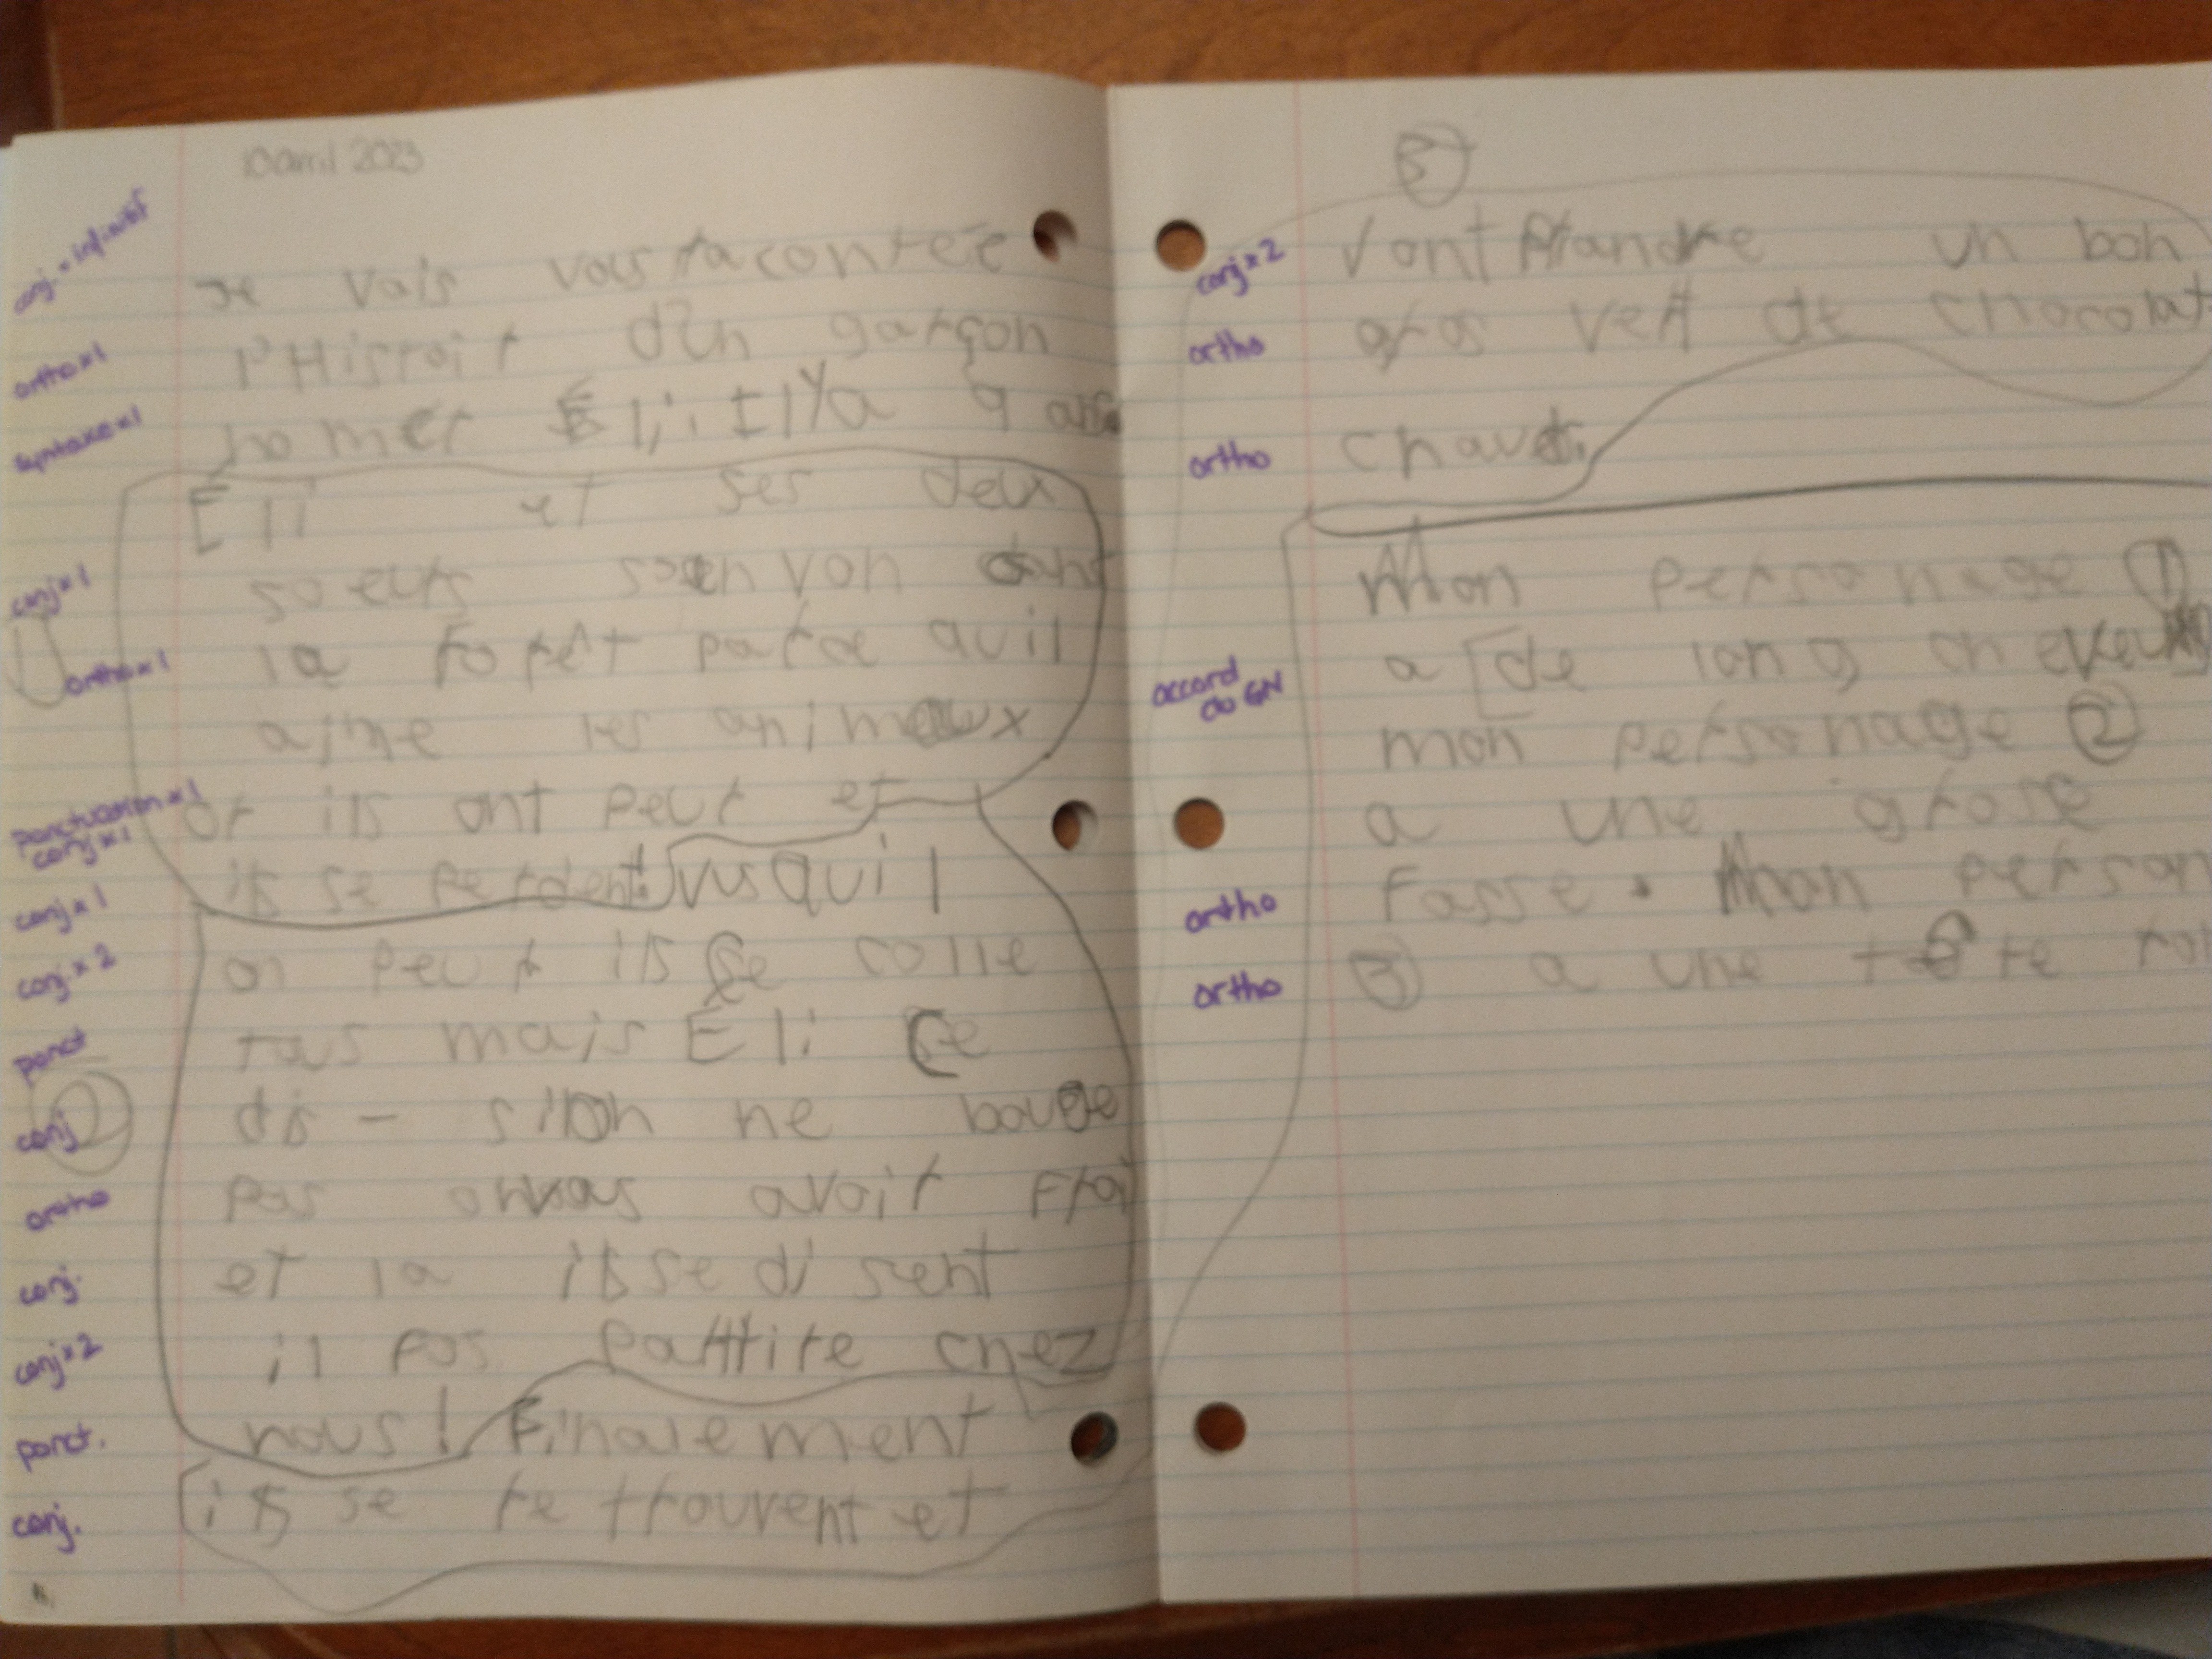 10 avril 2023
conj. + infinitif
Je vais vous racontére
ortho x1
l'Histoir d'un garçon
syntaxe x1
nomer Éli, Il y a
Éli et ses deux
conj x1
soeurs soenvon dans
ortho x1
la forêt parce quil
aime les animaux
ponctuation x1
conj x1
or ils ont peur et
conj x1
ils se perdent. vusqui l
conj x 2
on peur ils se colle
ponct
tous mais Éli se
conj
2
dis - si on ne bouge
ortho
pas avoir
conj.
et la ils se disent
conj x 2
il fos parttire chez
ponct.
nous! Finalement
conj.
ils se retrouvent et
3
conj x 2
vont prandre un bon
ortho
gros vert de chocolat
ortho
chaud.
Mon personage 1
accord
du GN
a [de long cheveux
mon personage 2
a une grosse
ortho
Fasse. Mon person
ortho
3 a une tête